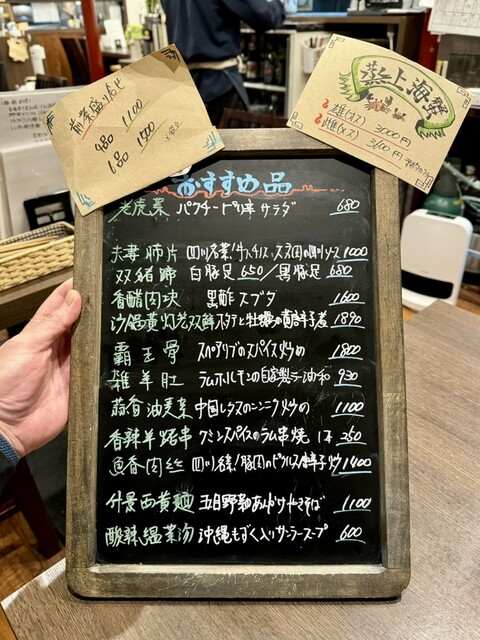 前菜盛り合せ
4品 1100
6品 1500
蒸上海蟹
雄(オス) 3000円
雌(メス) 3100円
おすすめ品
老虎菜 パクチーピリ辛サラダ 680
夫妻肺片 四川名菜!牛ハチノス、スネ肉の四川ソース 1000
双緒蹄 白豚足 650/黒豚足 680
香醋肉块 黒酢スブタ 1600
沙锅黄灯老双鮮 ホタテと牡蠣の黄唐辛子煮 1890
覇王骨 スペアリブのスパイス炒め 1800
雑羊肚 ラムホルモンの自家製ラー油和 930
蒜香油麦菜 中国レタスのニンニク炒め 1100
香辣羊烤串 クミンスパイスのラム串焼 1本 350
魚香肉丝 四川名菜!豚肉のピクルス辛子炒 1400
什景両黄麺 五目野菜あんかけやきそば 1100
酸辣温菜汤 沖縄もずく入りサンラースープ 600